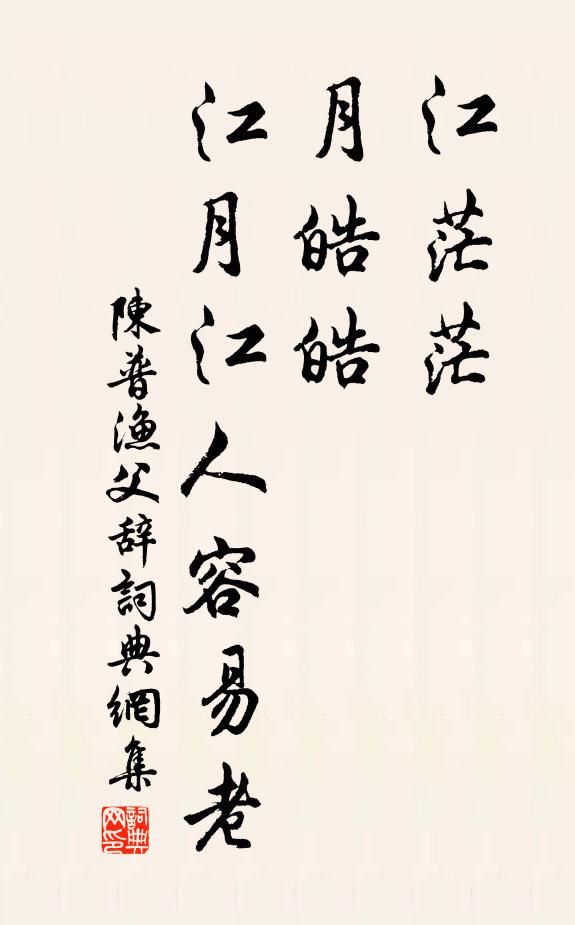 江茫茫
月皓皓
江月江人容易老
陳普漁父辞詞典網集
詞典
网印